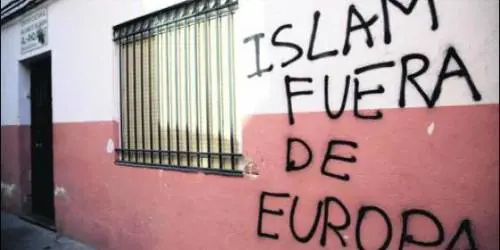 ISLAM
FUERA
DE
EUROPA